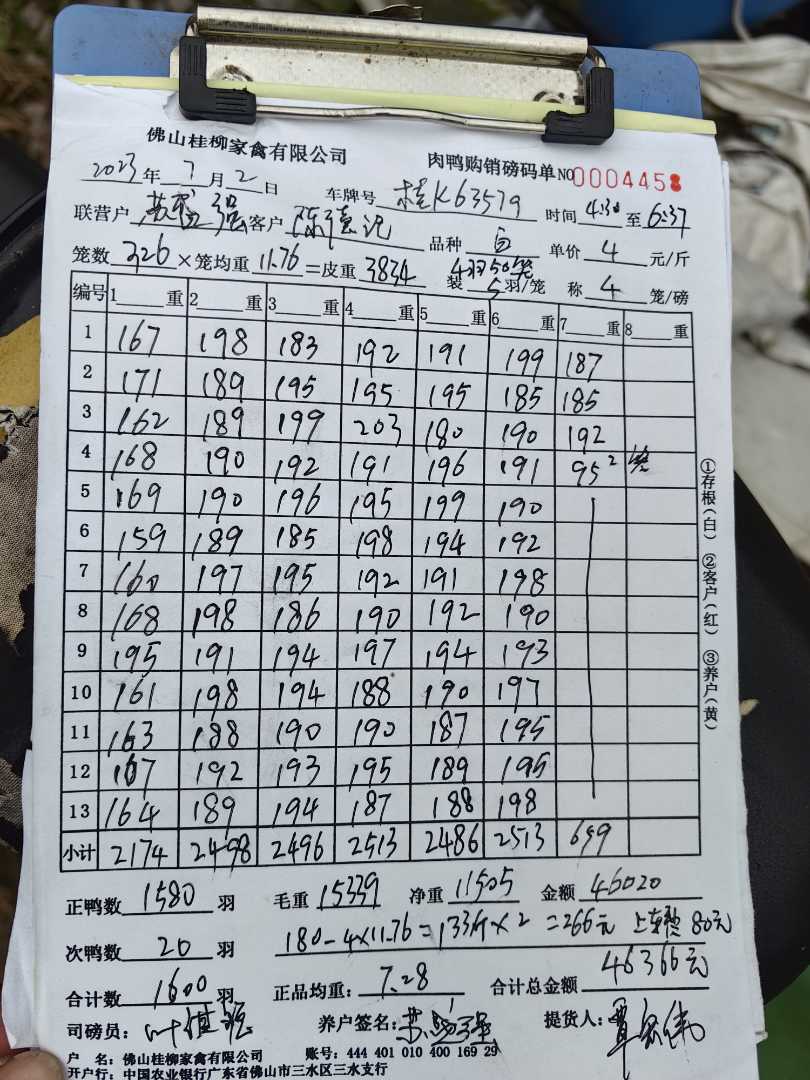 佛山桂柳家禽有限公司 肉鸭购销磅码单 NO 0004458
2023年7月2日 车牌号 桂K63579 时间 4:30 至 6:37
联营户 苏 强 客户 陈 记 品种 白 单价 4 元/斤
笼数 326 ×笼均重 11.76 =皮重 3834 4羽50笼 装 5 羽/笼 称 4 笼/磅
编号 1 重 2 重 3 重 4 重 5 重 6 重 7 重 8 重
1 167 198 183 192 191 199 187
2 171 189 195 195 195 185 185
3 162 189 199 203 180 190 192
4 168 190 192 191 196 191 95 2笼
5 169 190 196 195 199 190
6 159 189 185 198 194 192
7 160 197 195 192 191 198
8 168 198 186 190 192 190
9 195 191 194 197 194 193
10 161 198 194 188 190 197
11 163 188 190 190 187 195
12 167 192 193 195 189 195
13 164 189 194 187 188 198
小计 2174 2498 2496 2513 2486 2513 659
正鸭数 1580 羽 毛重 15339 净重 11505 金额 46020
次鸭数 20 羽 180-4×11.76=133斤×2=266元 上车 80元
合计数 1600 羽 正品均重: 7.28 合计总金额 46366元
司磅员: 叶 养户签名: 苏 强 提货人: 覃 伟
户 名: 佛山桂柳家禽有限公司 账号: 444 401 010 400 169 29
开户行: 中国农业银行广东省佛山市三水区三水支行
①存根(白) ②客户(红) ③养户(黄)